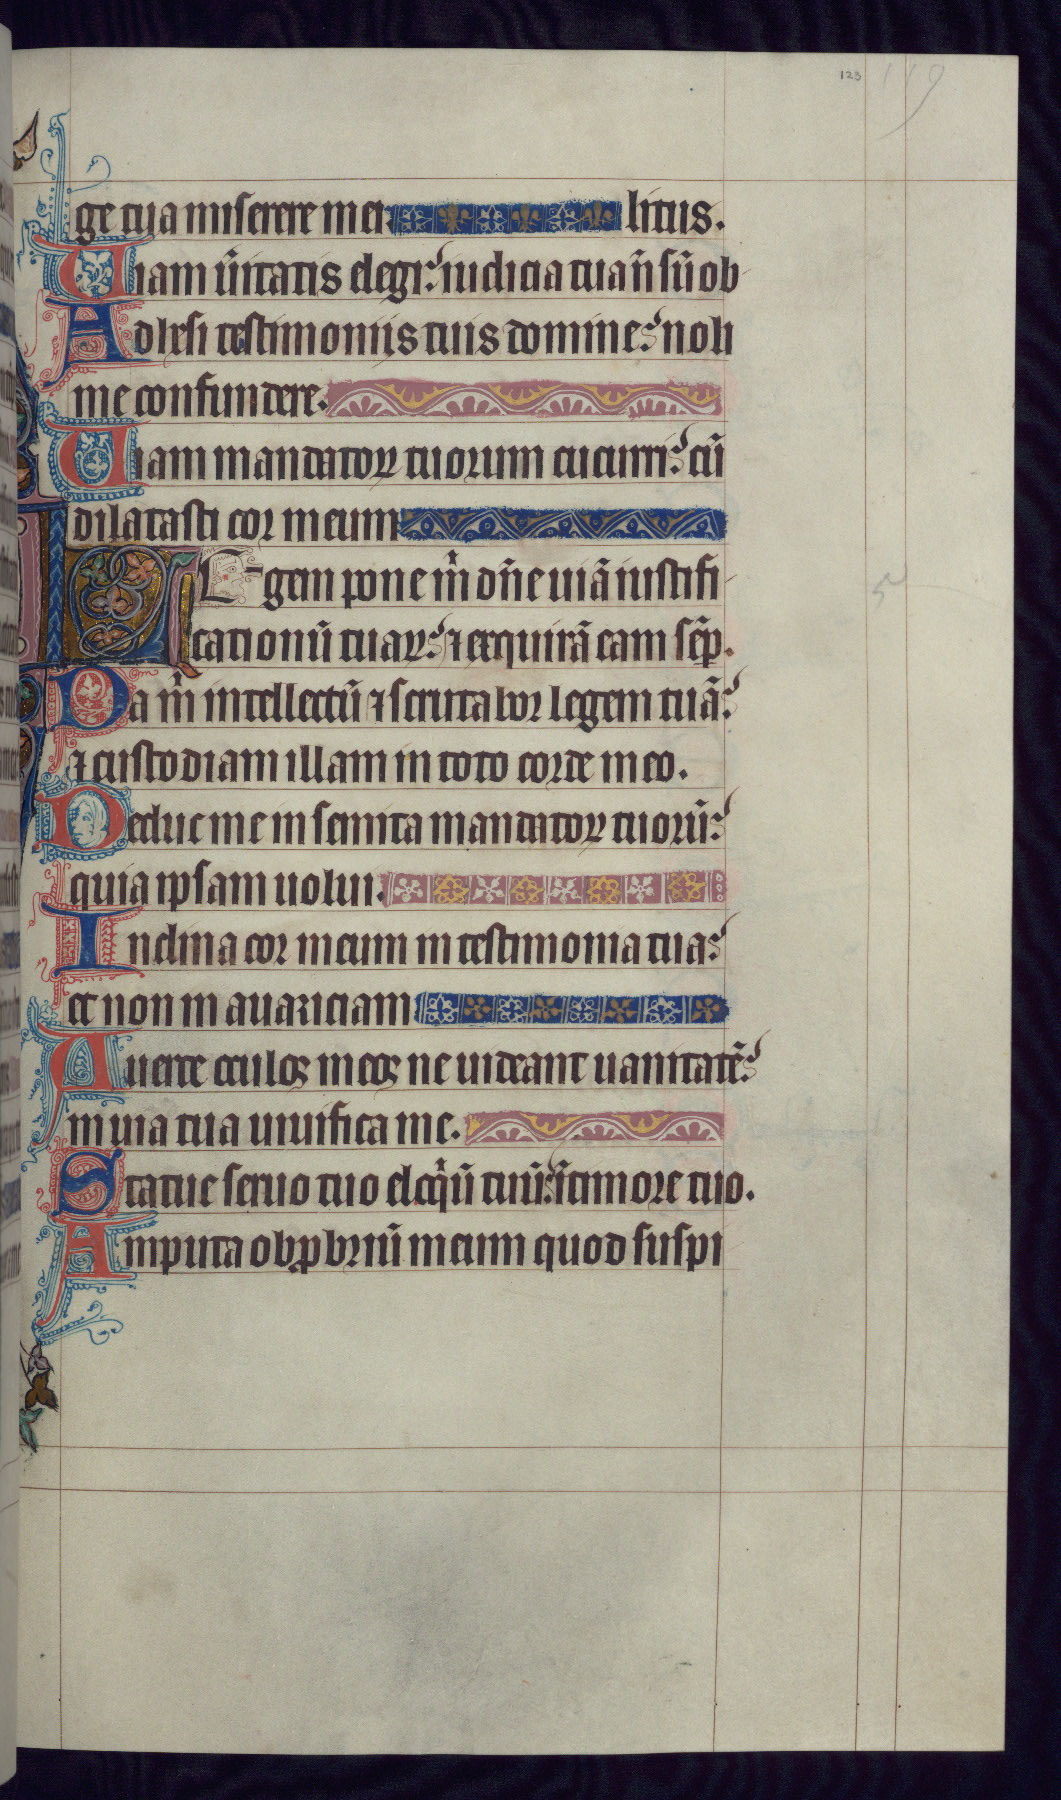 123 119
ge tua miserere mei litus.
Uiam ũitatis elegi: iudicia tua ñ sũ ob
Adhesi testimoniis tuis domine: noli
me confundere.
Uiam mandatoꝝ tuorum cucurri: cũ
dilatasti cor meum
Legem pone m̍ dñe uiã iustifi
cationũ tuaꝝ: ⁊ exquirã eam sẽp.
Da m̍ intellectũ ⁊ scrutabor legem tuã:
⁊ custodiam illam in toto corde meo.
Deduc me in semita mandatoꝝ tuorũ:
quia ipsam uolui.
Inclina cor meum in testimonia tua:
et non in auariciam
Auerte oculos meos ne uideant uanitatẽ:
in uia tua uiuifica me.
Statue seruo tuo eloq̍ũ tuũ: ĩ timore tuo.
Amputa obꝓbriũ meum quod suspi